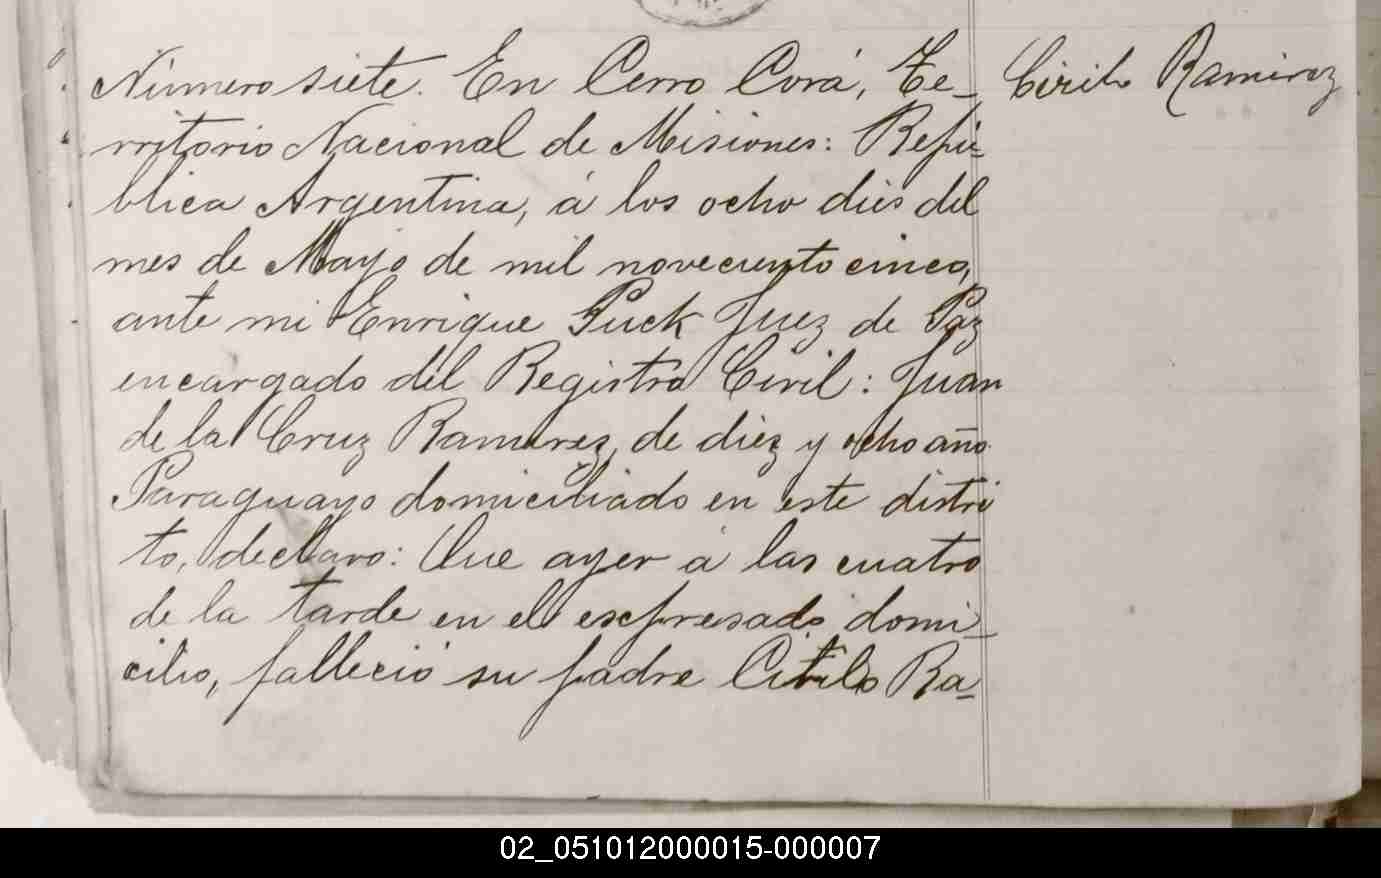 Número siete. En Cerro Corá, Te-
rritorio Nacional de Misiones: Repú-
blica Argentina, á los ocho dias del
mes de Mayo de mil noveciento cinco,
ante mi Enrique Puck Juez de Paz
encargado del Registro Civil: Juan
de la Cruz Ramirez, de diez y ocho año
Paraguayo domiciliado en este distri
to, declaro: Que ayer á las cuatro
de la tarde en el espresado domi-
cilio, falleció su padre Cirilo Ra-
Cirilo Ramirez
02_051012000015-000007